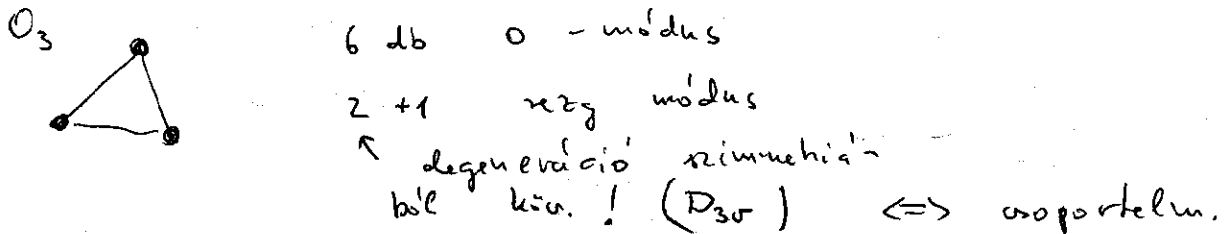 O₃ 6 db 0 - módus
2 + 1 rezg módus
↑ degeneráció szimmetriá-
ból köv. ! (D₃ᵥ) <=> csoportelm.